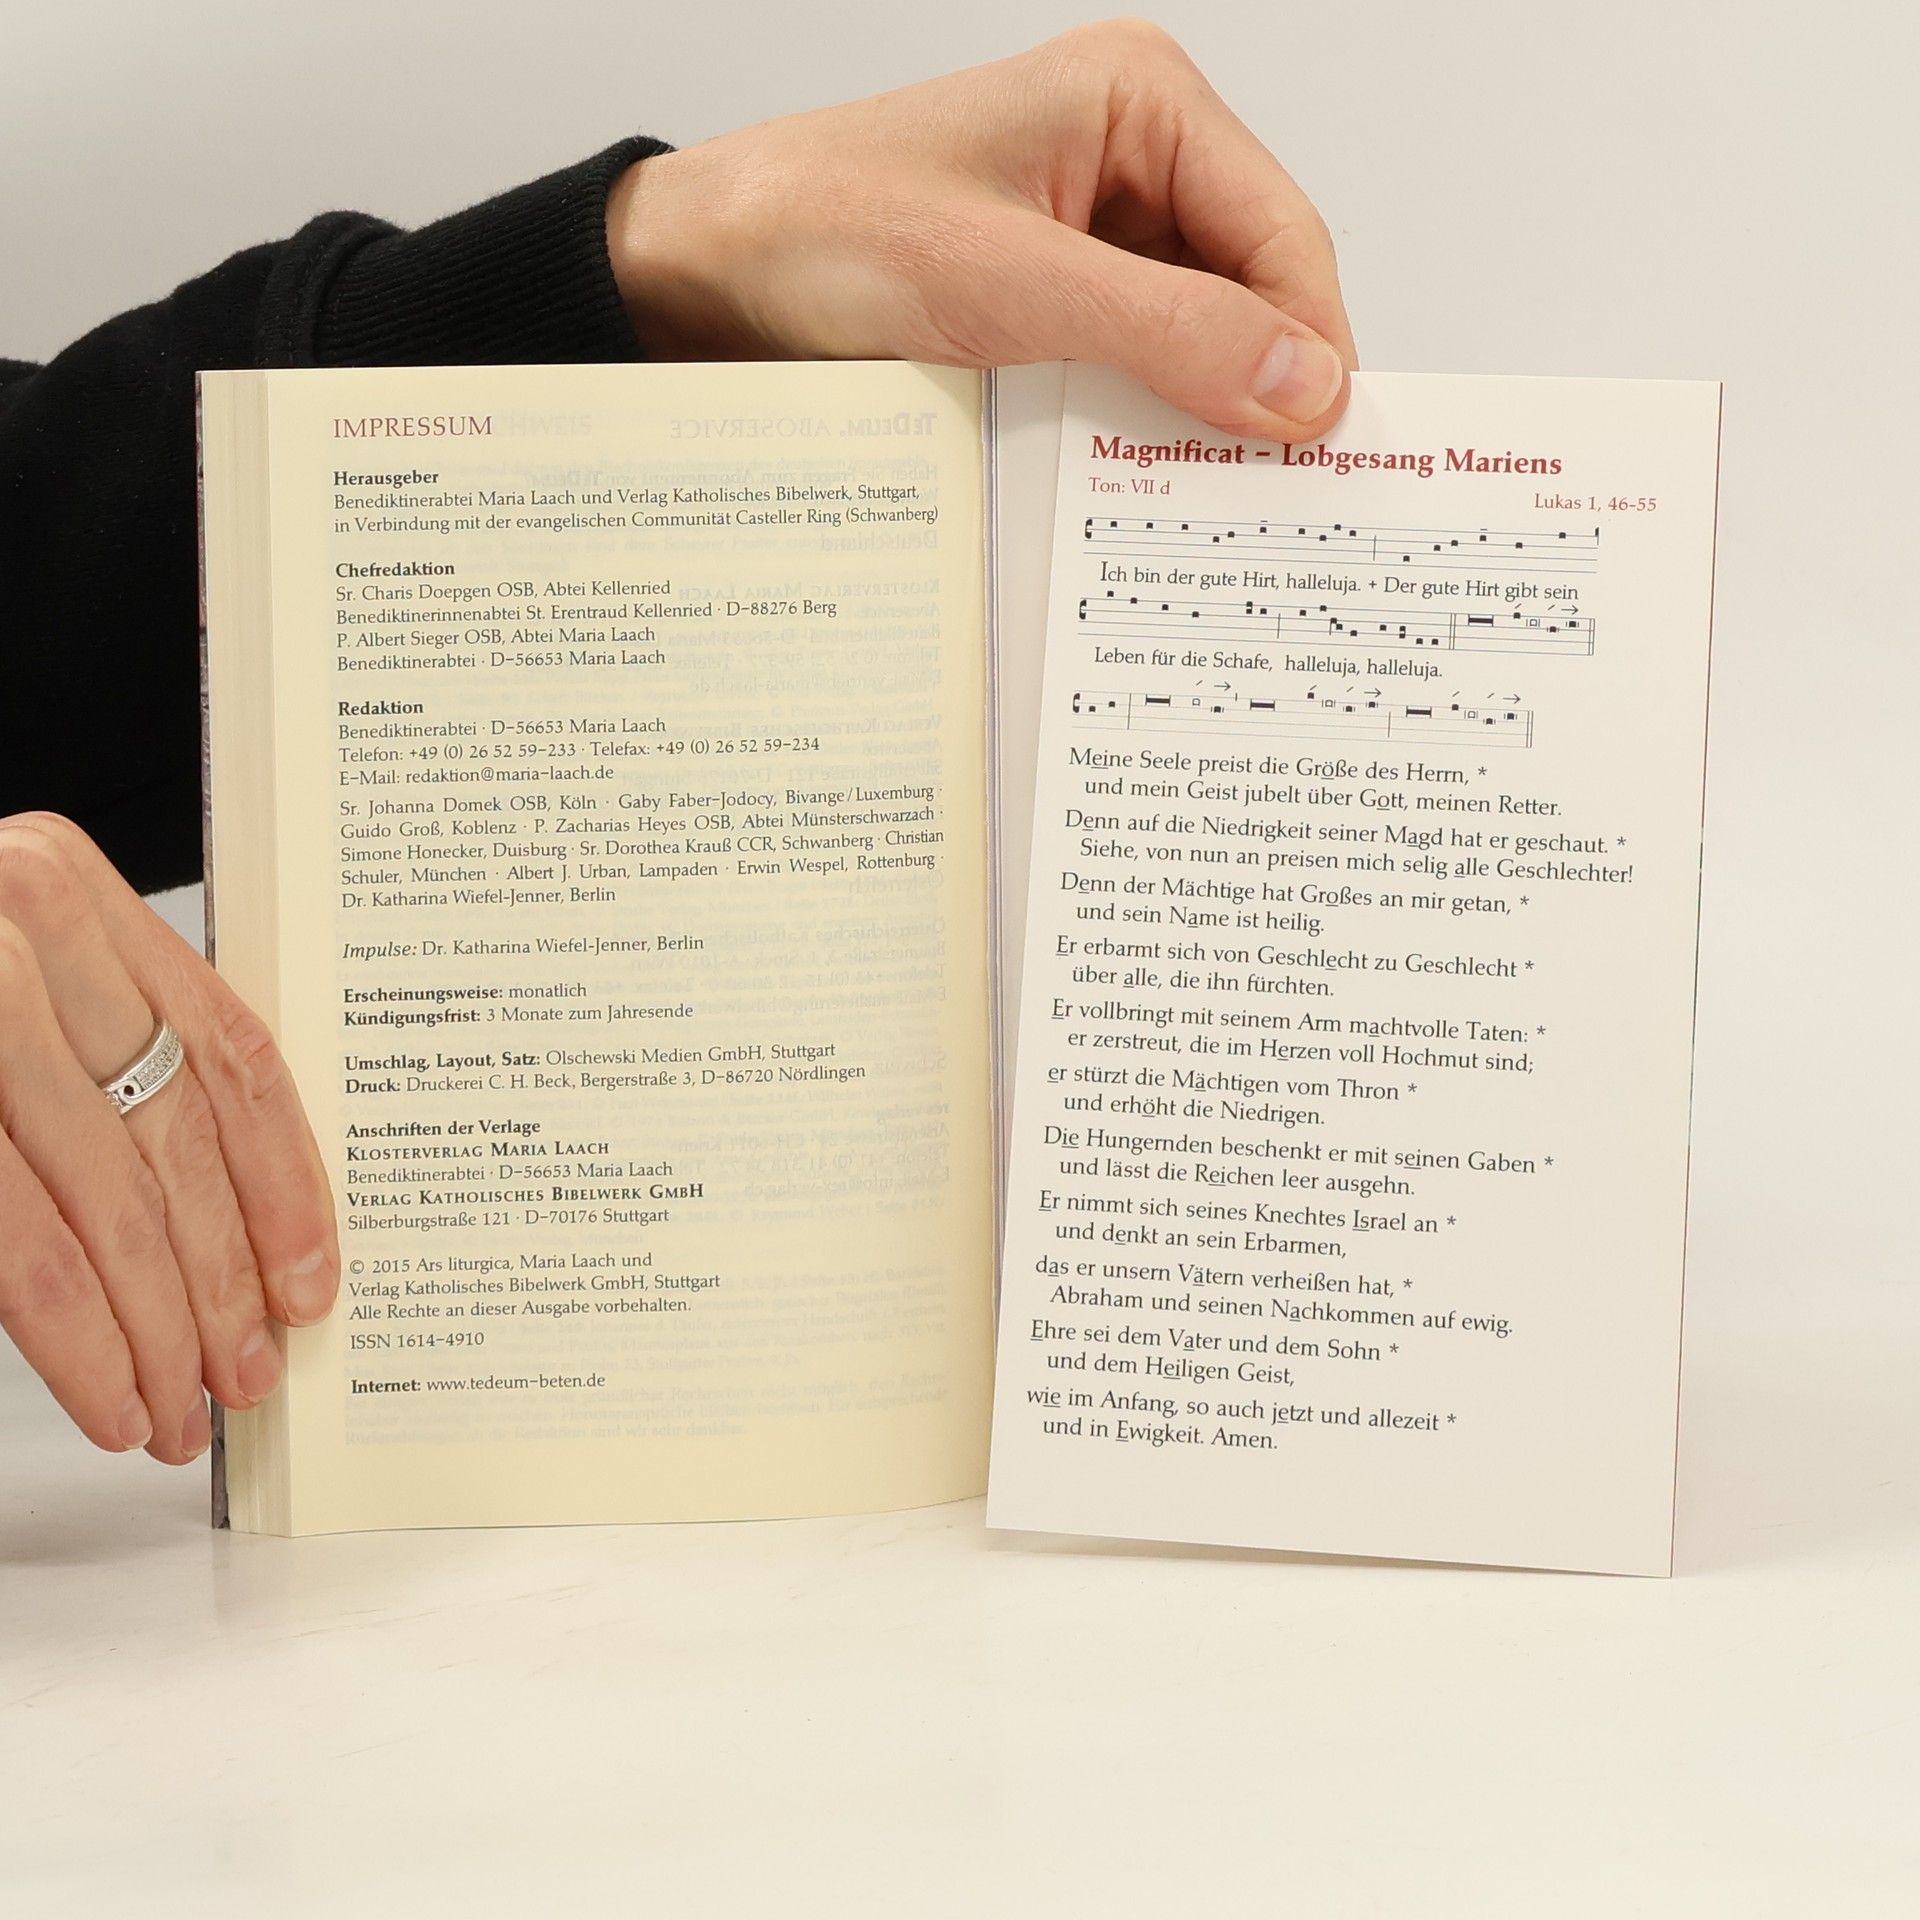 IMPRESSUM
Herausgeber
Benediktinerabtei Maria Laach und Verlag Katholisches Bibelwerk, Stuttgart,
in Verbindung mit der evangelischen Communität Casteller Ring (Schwanberg)
Chefredaktion
Sr. Charis Doepgen OSB, Abtei Kellenried
Benediktinerinnenabtei St. Erentraud Kellenried · D-88276 Berg
P. Albert Sieger OSB, Abtei Maria Laach
Benediktinerabtei · D-56653 Maria Laach
Redaktion
Benediktinerabtei · D-56653 Maria Laach
Telefon: +49 (0) 26 52 59-233 · Telefax: +49 (0) 26 52 59-234
E-Mail: redaktion@maria-laach.de
Sr. Johanna Domek OSB, Köln · Gaby Faber-Jodocy, Bivange/Luxemburg ·
Guido Groß, Koblenz · P. Zacharias Heyes OSB, Abtei Münsterschwarzach ·
Simone Honecker, Duisburg · Sr. Dorothea Krauß CCR, Schwanberg · Christian
Schuler, München · Albert J. Urban, Lampaden · Erwin Wespel, Rottenburg ·
Dr. Katharina Wiefel-Jenner, Berlin
Impulse: Dr. Katharina Wiefel-Jenner, Berlin
Erscheinungsweise: monatlich
Kündigungsfrist: 3 Monate zum Jahresende
Umschlag, Layout, Satz: Olschewski Medien GmbH, Stuttgart
Druck: Druckerei C. H. Beck, Bergerstraße 3, D-86720 Nördlingen
Anschriften der Verlage
KLOSTERVERLAG MARIA LAACH
Benediktinerabtei · D-56653 Maria Laach
VERLAG KATHOLISCHES BIBELWERK GMBH
Silberburgstraße 121 · D-70176 Stuttgart
© 2015 Ars liturgica, Maria Laach und
Verlag Katholisches Bibelwerk GmbH, Stuttgart
Alle Rechte an dieser Ausgabe vorbehalten.
ISSN 1614-4910
Internet: www.tedeum-beten.de
Magnificat - Lobgesang Mariens
Ton: VII d
Lukas 1, 46-55
Ich bin der gute Hirt, halleluja. + Der gute Hirt gibt sein
Leben für die Schafe, halleluja, halleluja.
Meine Seele preist die Größe des Herrn, *
und mein Geist jubelt über Gott, meinen Retter.
Denn auf die Niedrigkeit seiner Magd hat er geschaut. *
Siehe, von nun an preisen mich selig alle Geschlechter!
Denn der Mächtige hat Großes an mir getan, *
und sein Name ist heilig.
Er erbarmt sich von Geschlecht zu Geschlecht *
über alle, die ihn fürchten.
Er vollbringt mit seinem Arm machtvolle Taten: *
er zerstreut, die im Herzen voll Hochmut sind;
er stürzt die Mächtigen vom Thron *
und erhöht die Niedrigen.
Die Hungernden beschenkt er mit seinen Gaben *
und lässt die Reichen leer ausgehn.
Er nimmt sich seines Knechtes Israel an *
und denkt an sein Erbarmen,
das er unsern Vätern verheißen hat, *
Abraham und seinen Nachkommen auf ewig.
Ehre sei dem Vater und dem Sohn *
und dem Heiligen Geist,
wie im Anfang, so auch jetzt und allezeit *
und in Ewigkeit. Amen.